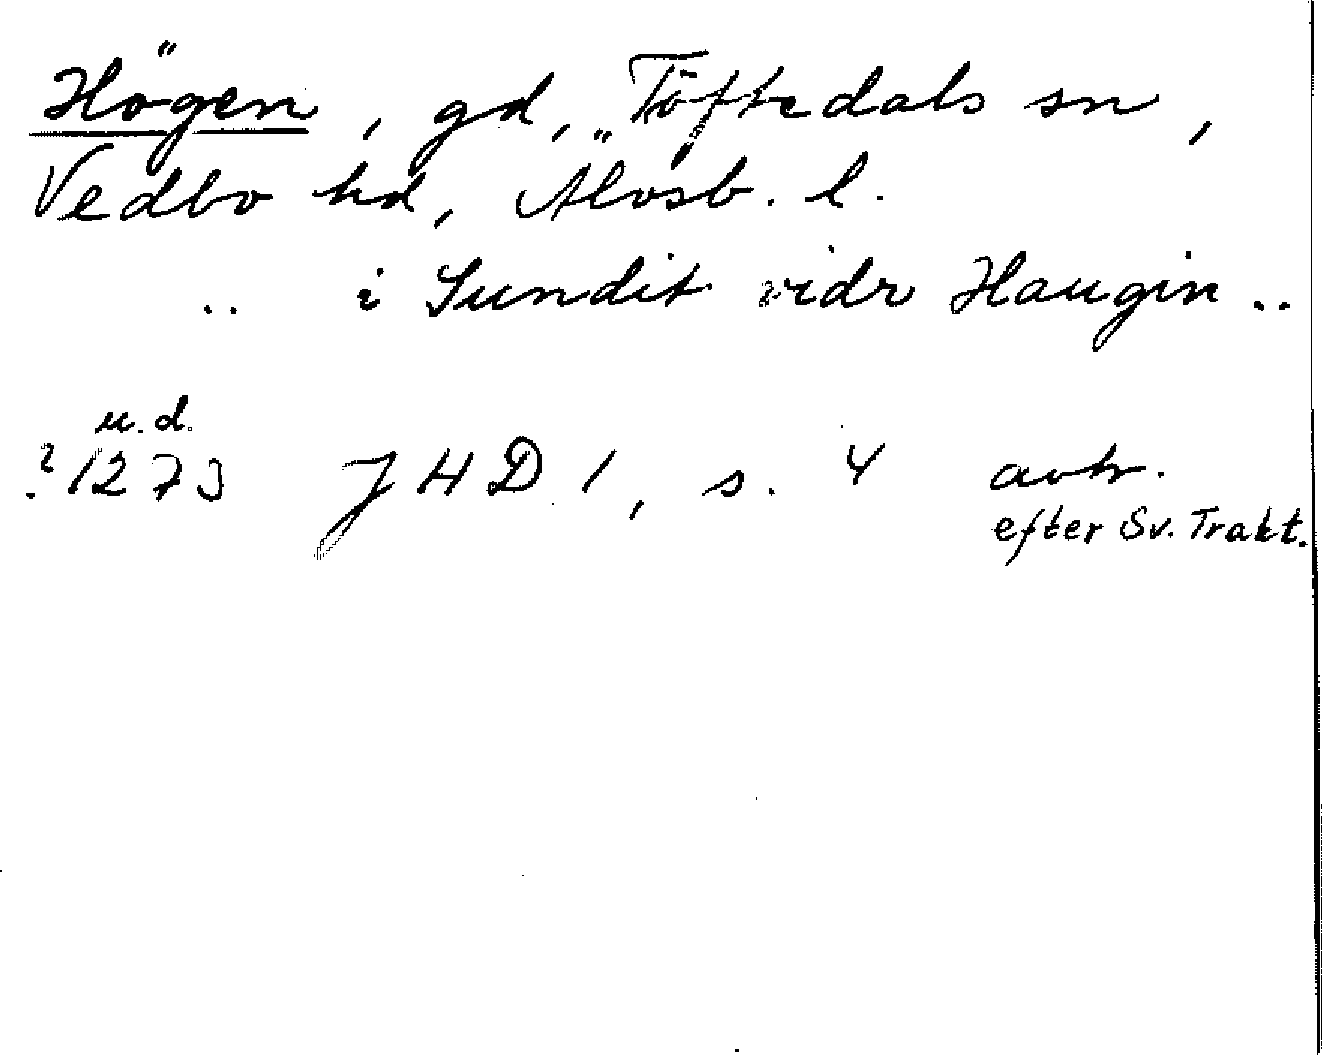 Högen, gd, Töftedals sn,
Vedbo hd, Älvsb. l.
.. i Sundit vidr Haugin ..
u.d.
?1273 JHD 1, s. 4 avtr.
efter Sv. Trakt.